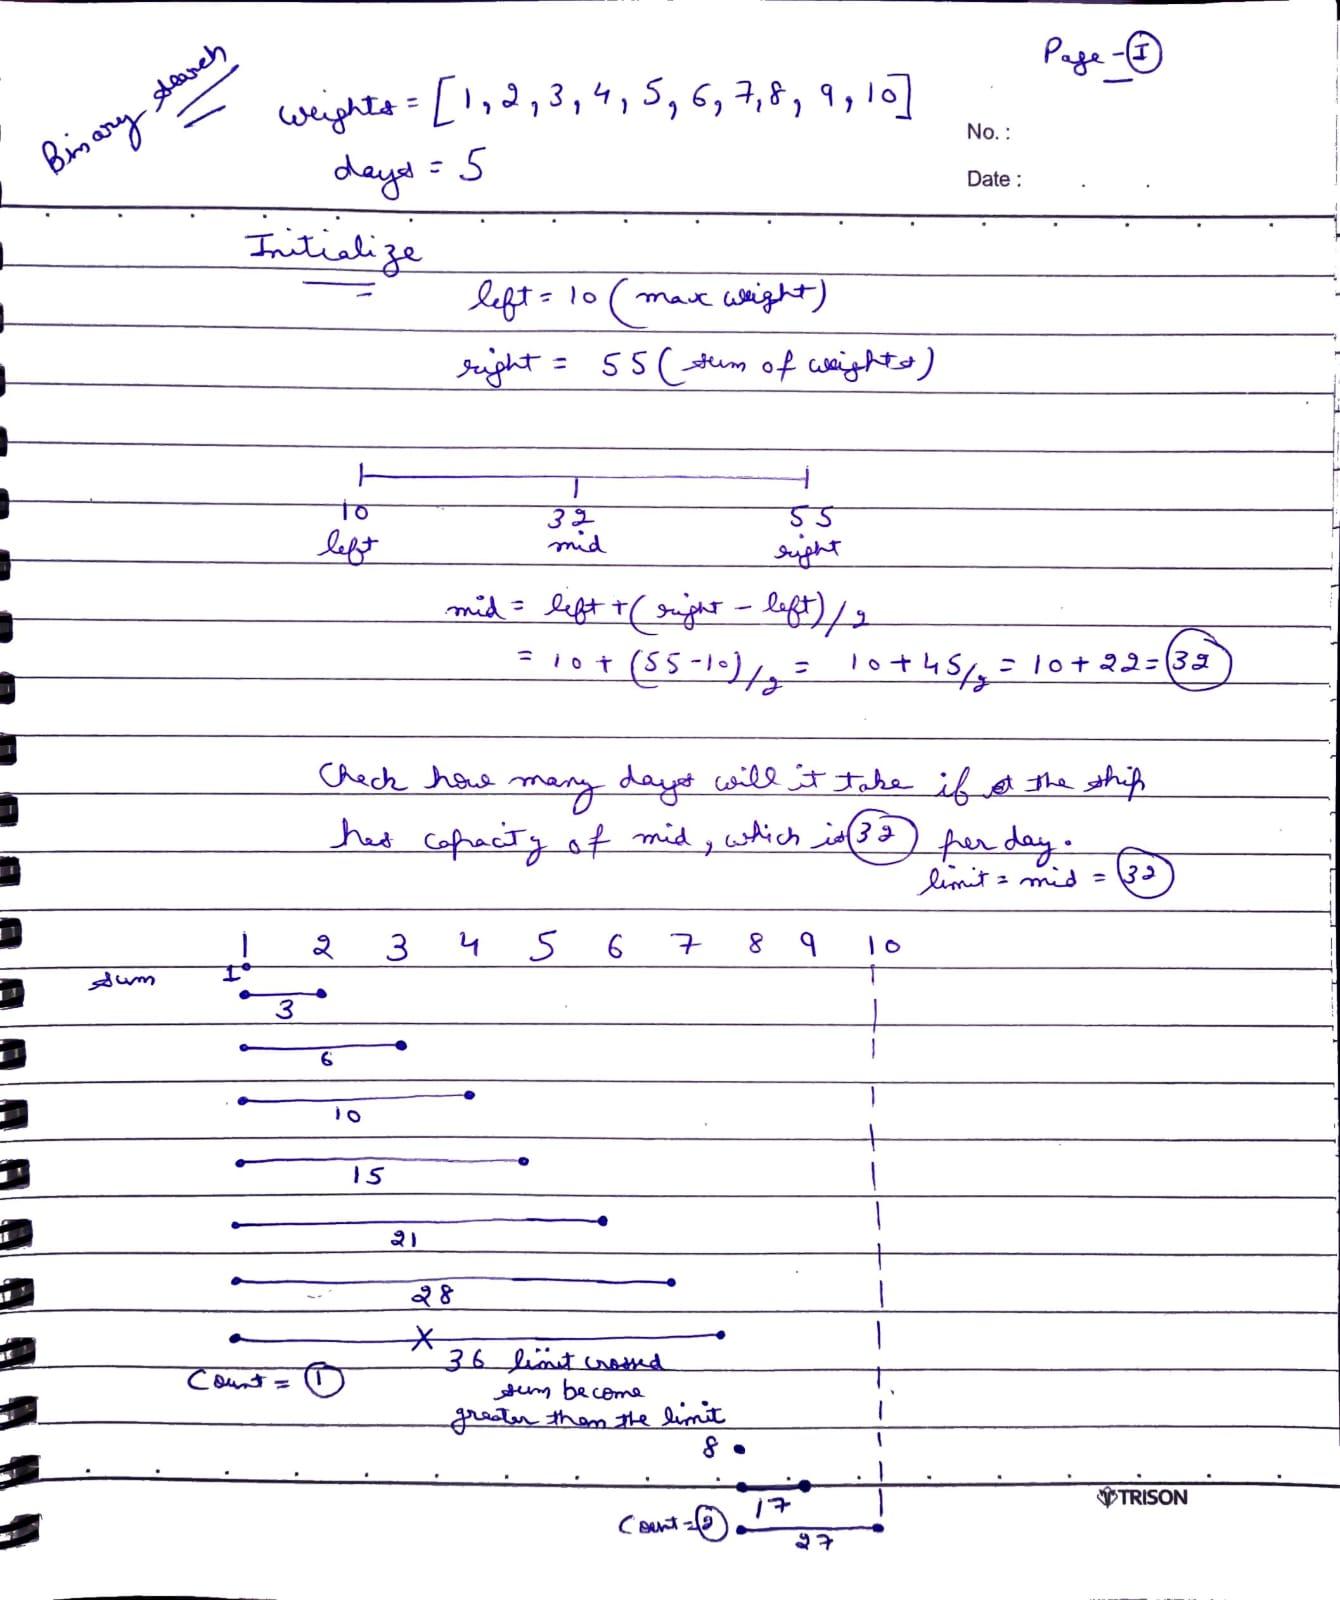 Page - I
Binary Search
weights = [1, 2, 3, 4, 5, 6, 7, 8, 9, 10]
No. :
days = 5
Date :
Initialize
left = 10 (max weight)
right = 55 (sum of weights)
10 32 55
left mid right
mid = left + (right - left)/2
= 10 + (55-10)/2 = 10 + 45/2 = 10 + 22 = 32
Check how many days will it take if the ship
has capacity of mid, which is 32 per day.
limit = mid = 32
1 2 3 4 5 6 7 8 9 10
sum 1
3
6
10
15
21
28
X
36 limit crossed
Count = 1
sum become
greater than the limit
8
TRISON
17
Count = 2
27